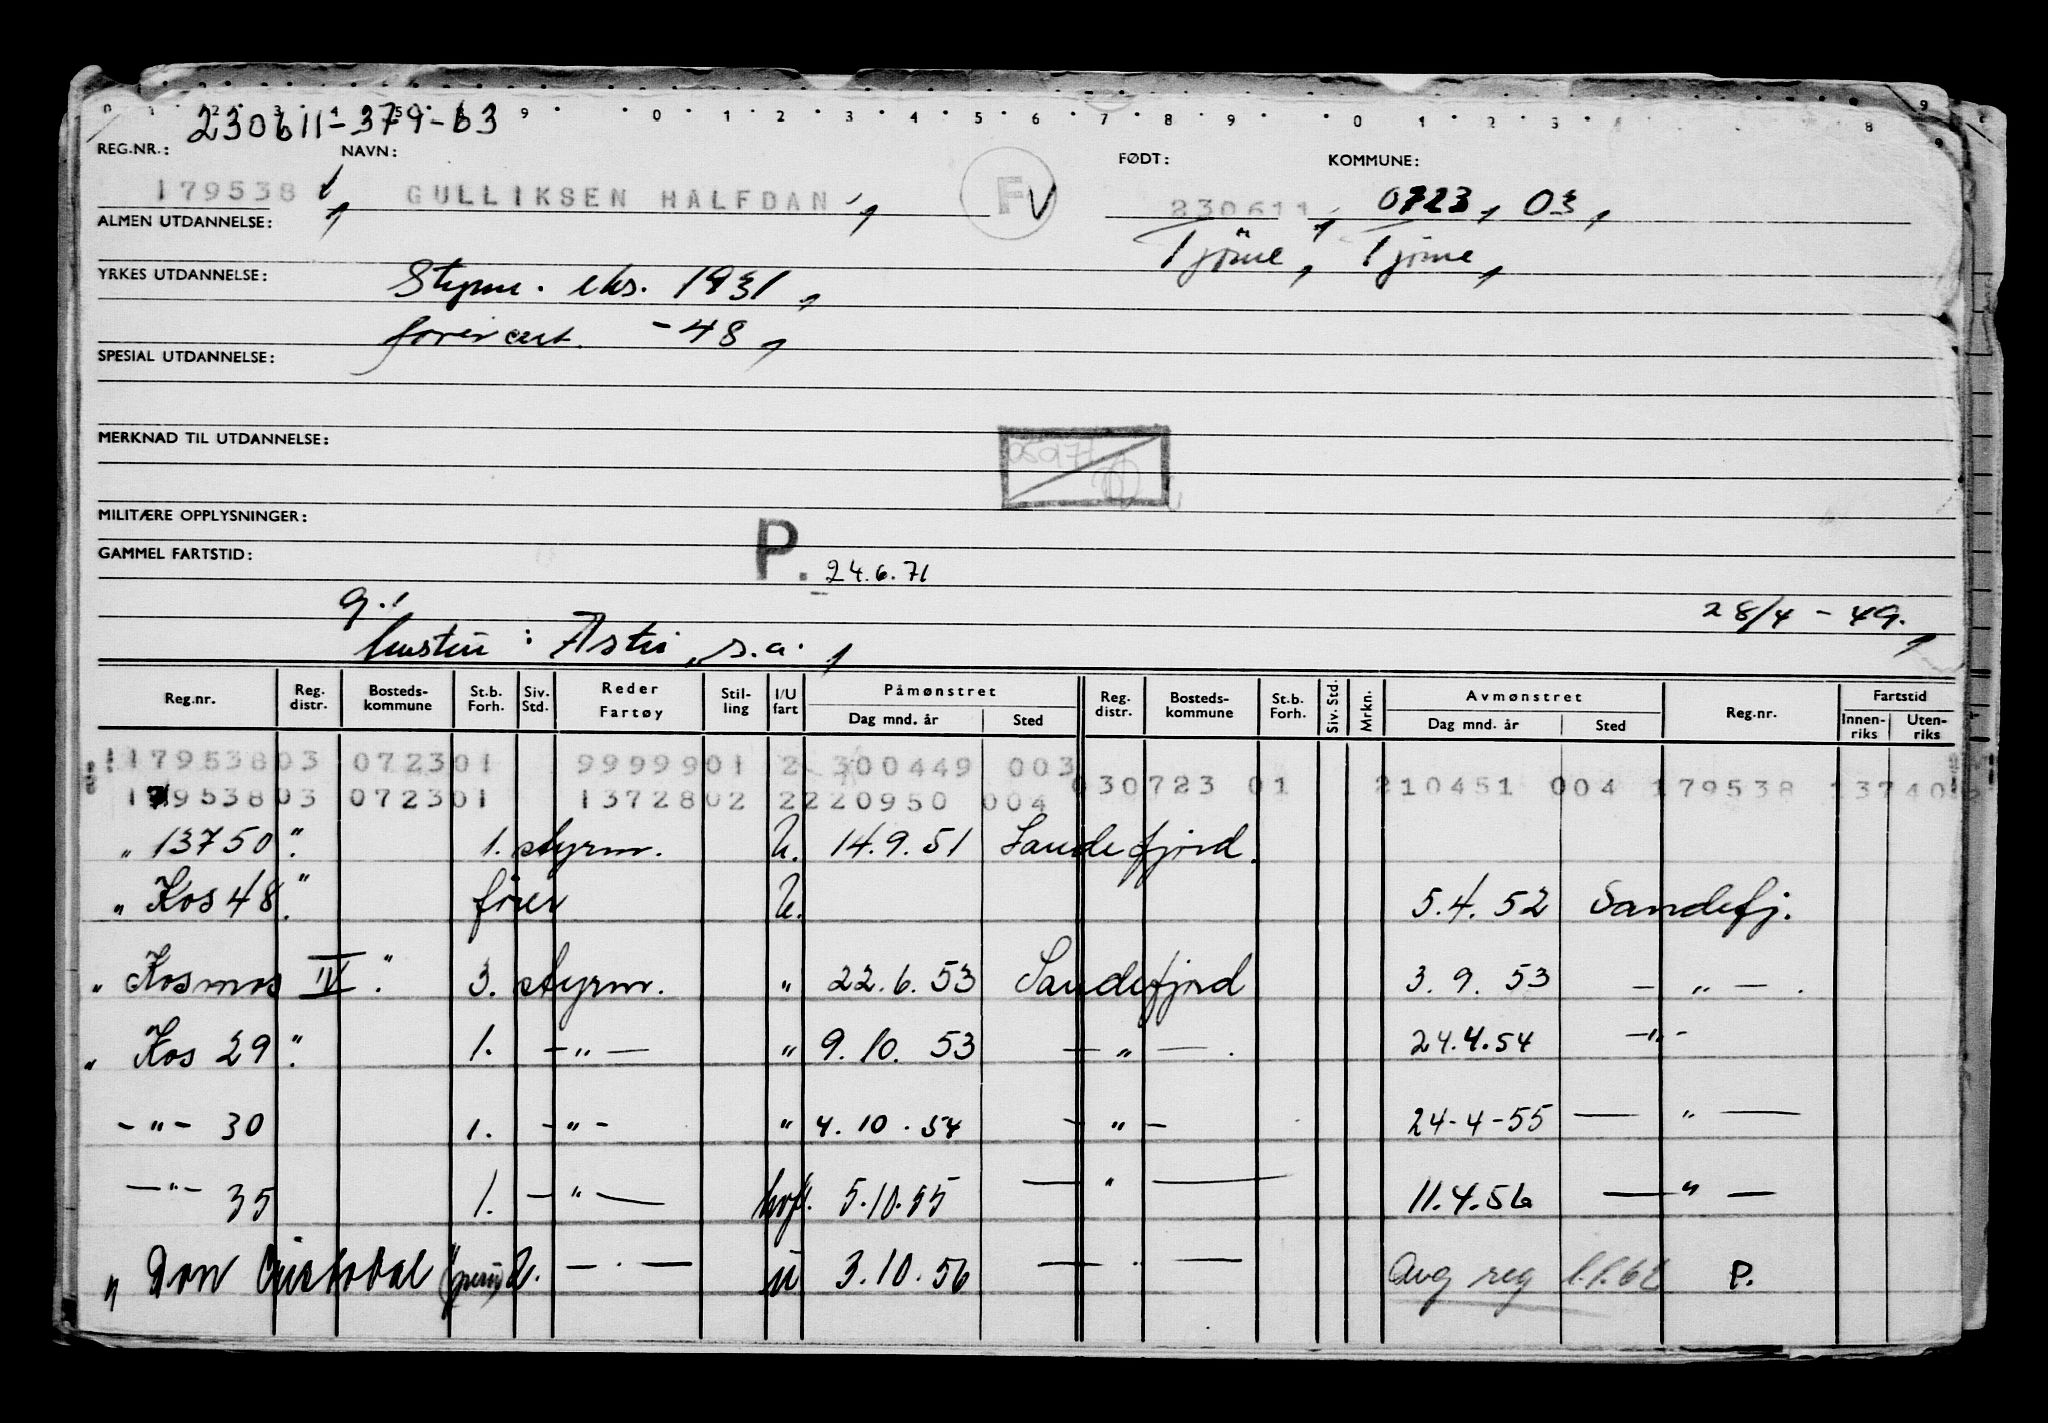 230611-379-63
REG.NR.: NAVN: FØDT: KOMMUNE:
179538 GULLIKSEN HALFDAN F V 230611, 0723, 03,
ALMEN UTDANNELSE: Tjöme, Tjöme,
YRKES UTDANNELSE: Styrm. eks. 1931,
förercert. -48,
SPESIAL UTDANNELSE:
MERKNAD TIL UTDANNELSE:
MILITÆRE OPPLYSNINGER:
GAMMEL FARTSTID: P. 24.6.71
g.! 28/4-49.,
hustru: Astri, s.a.,
Reg.nr. Reg. distr. Bosteds- kommune St.b. Forh. Siv. Std. Reder Fartøy Stil- ling I/U fart Påmønstret Dag mnd. år Sted Reg. distr. Bosteds- kommune St.b. Forh. Siv. Std. Mrkn. Avmønstret Dag mnd. år Sted Reg.nr. Fartstid Innen- riks Uten- riks
17953803 072301 9999901 2 300449 003
17953803 072301 1372802 2220950 004 030723 01 210451 004 179538 13740
" 13750 " 1. styrm. U. 14.9.51 Sandefjord.
" Kos 48 " förer U. 5.4.52 Sandefj.
" Kosmos IV " 3. styrm. " 22.6.53 Sandefjord 3.9.53 - " - .
" Kos 29 " 1. - " - " 9.10.53 - " - . 24.4.54 - " -
- " - 30 1. - " - " 4.10.54 - " - 24-4-55 - " -
- " - 35 1. - " - hvf. 5.10.55 - " - 11.4.56 - " -
" Don 2. - . - u 3.10.56 - . - Avg reg 1.1.62 P.